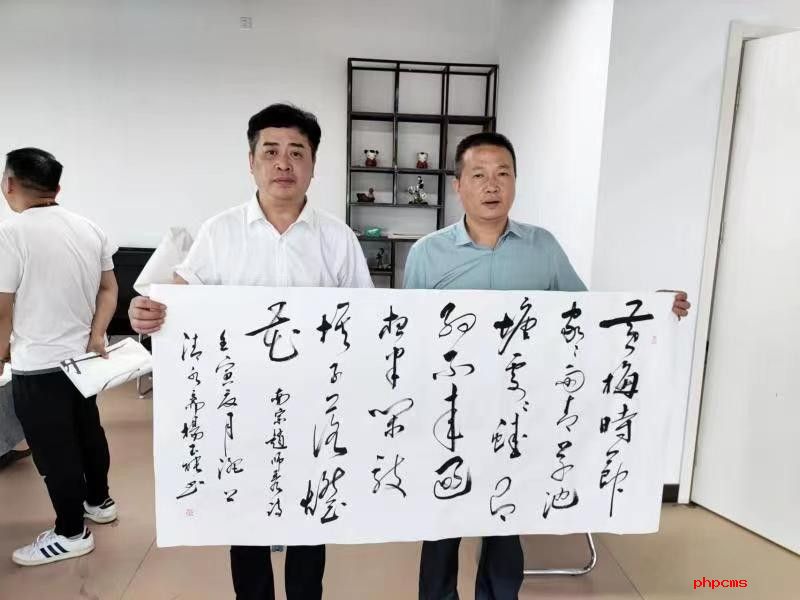 黄梅時節
家々雨青草池
塘處々蛙有
約不來過
夜半閑敲
棋子落燈
花
南宋趙師秀詩
壬寅夏月
清水齋楊玉书
phpcms